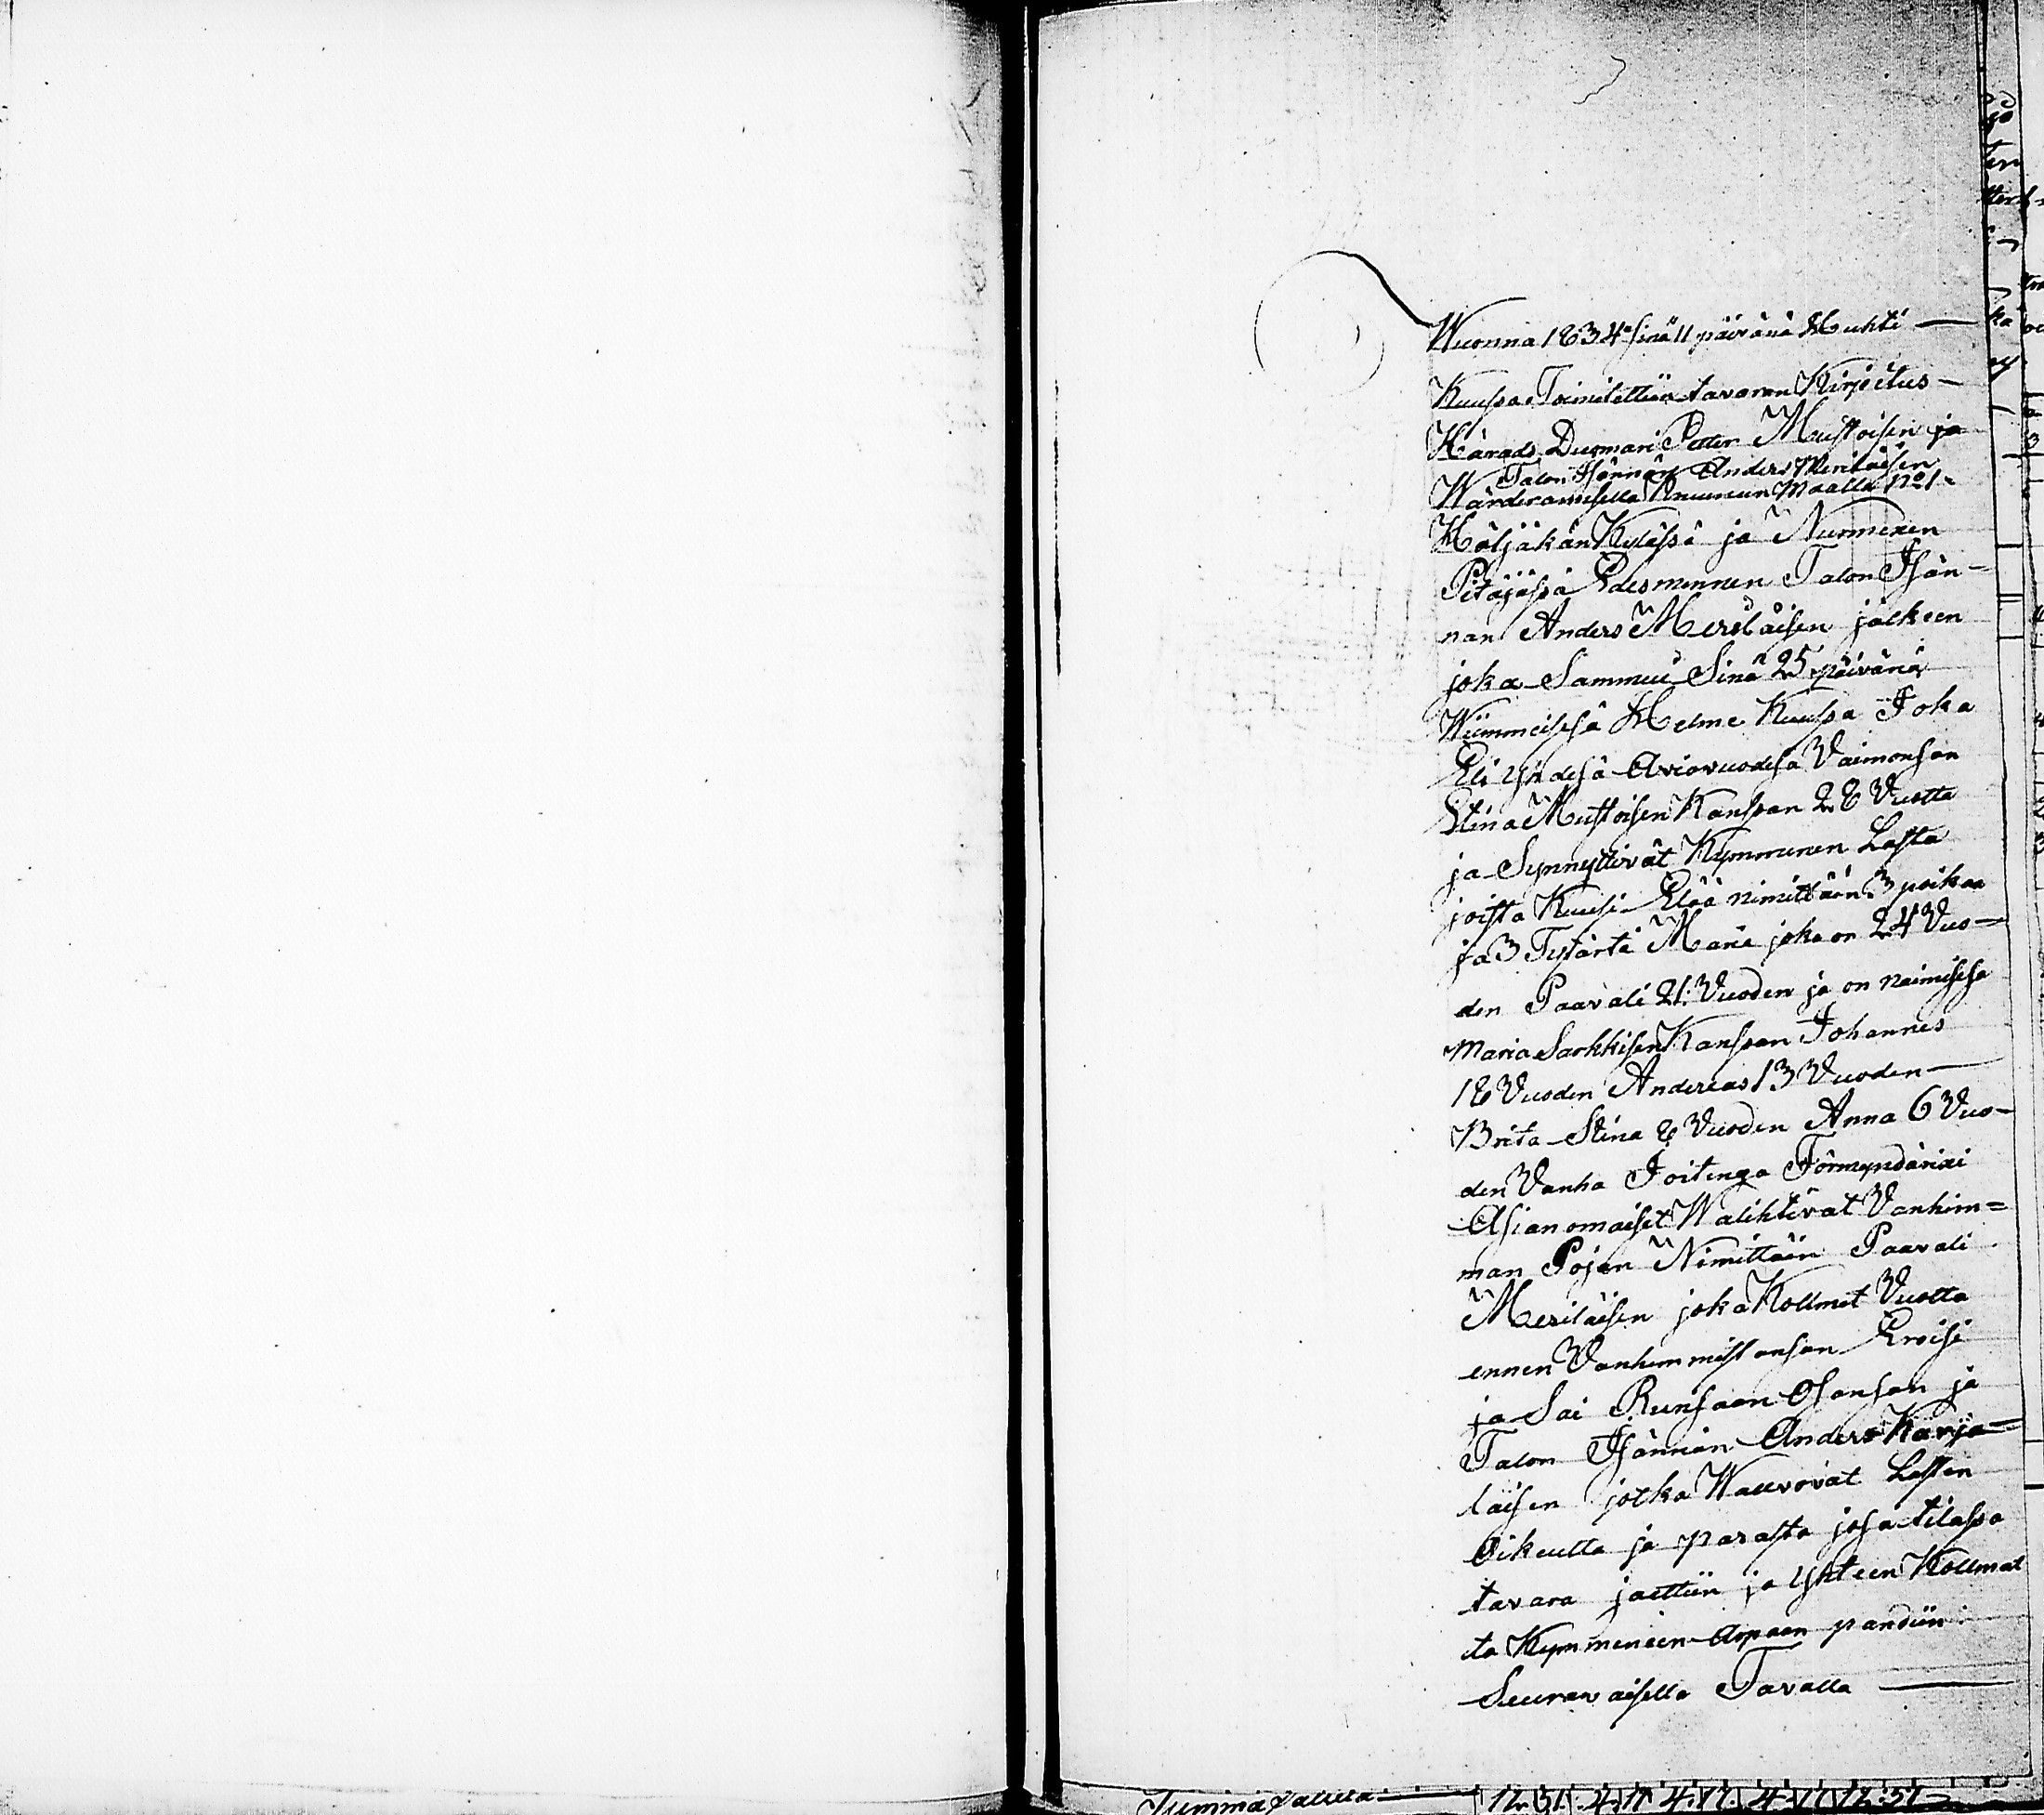 Wuonna 1834 sinä 11 päivänä Huhti —
Kuussa Toimitettiin tavaran Kirjoitus —
Härads Duomari Petter Mustoisen ja
Talon Isännän Anders Meriläisen
Wärderamisella Knuuneun Maalla No 1
Höljäkän Kylässä ja Nurmexen
Pitäjässä Edesmennen Talon Isän-
nan Anders Meriläisen jälkeen
joka Sammui Sinä 25 päivänä
Wiimmeisessä Helme Kuussa Joka
Eli yhdesä Aviovuodesa Vaimonsan
Stina Mustoisen Kanssan 28 Vuotta
ja Synnyttivät Kymmenen Lasta
joista Kuusi Elää nimittäin 3 poikaa
ja 3 Tytärtä Maria joka on 24 Vuo-
den Paavali 21 Vuoden ja on naimisessa
Maria Sarkkisen Kanssan Johannes
18 Vuoden Andereas 13 Vuoden —
Brita Stina 8 Vuoden Anna 6 Vuo-
den Vanha Joitenga Förmyndärixi
Asianomaiset Walihtivat Vanhim=
man Pojan Nimittäin Paavali
Meriläisen joka Kollmet Vuotta
ennen Vanhemmistansan Eroisi
ja Sai Runsaan Osansan ja
Talon Isännän Anders Karja-
läisen jotka Wallvovat Lasten
Oikeutta ja parasta josa tilassa
tavara jaettiin ja yhteen Kollmat
ta Kymmeneen Arpaan pandiin
Seuravaisella Tavalla —
Summa